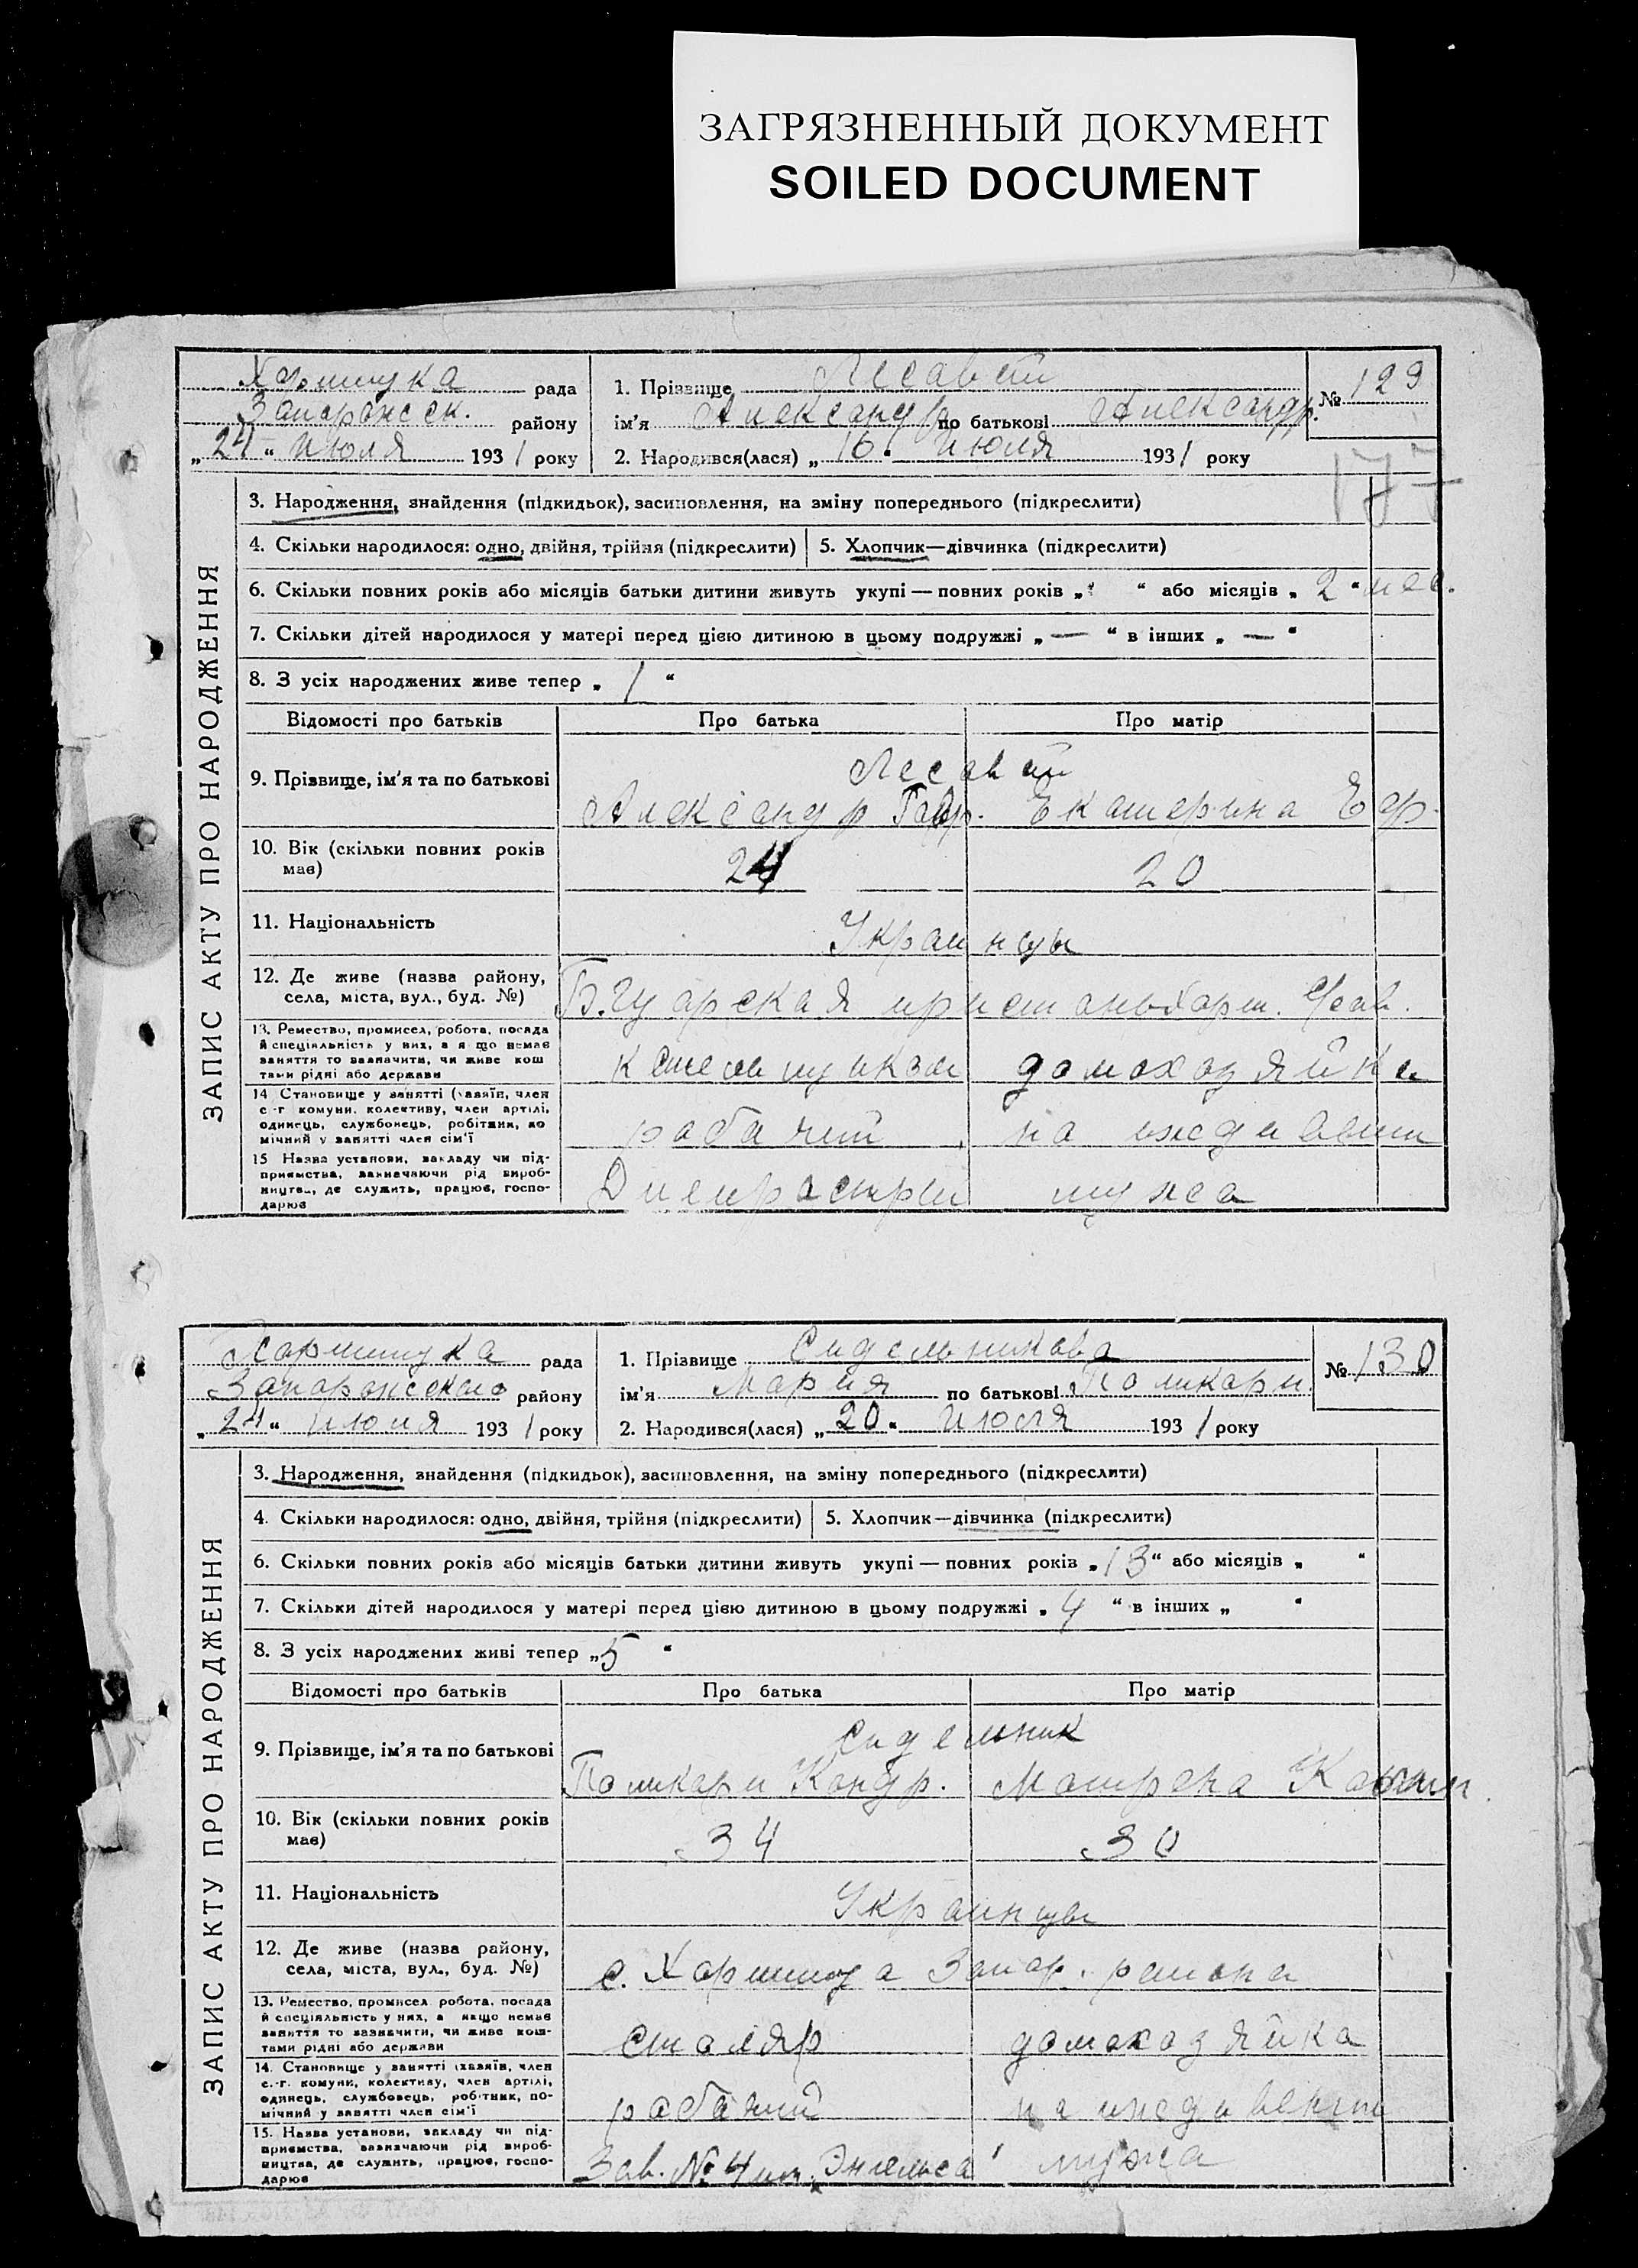 ЗАГРЯЗНЕННЫЙ ДОКУМЕНТ
SOILED DOCUMENT
Хортицка рада
Запорожск. району
„24“ июля 1931 року
1. Прізвище Лесавый
ім'я Александр по батькові Александр.
2. Народився(лася) „16“ июля 1931 року
№ 129
177
ЗАПИС АКТУ ПРО НАРОДЖЕННЯ
3. Народження, знайдення (підкидьок), засиновлення, на зміну попереднього (підкреслити)
4. Скільки народилося: одно, двійня, трійня (підкреслити)
5. Хлопчик—дівчинка (підкреслити)
6. Скільки повних років або місяців батьки дитини живуть укупі — повних років „ “ або місяців „ 2 “ мес.
7. Скільки дітей народилося у матері перед цією дитиною в цьому подружжі „ — “ в інших „ — “
8. З усіх народжених живе тепер „ 1 “
Відомості про батьків
Про батька
Про матір
9. Прізвище, ім'я та по батькові
Лесавый
Александр Гавр. Екатерина Ефр.
10. Вік (скільки повних років має)
24
20
11. Національність
Украинцы
12. Де живе (назва району, села, міста, вул., буд. №)
пристань Хорт.
13. Ремество, промисел, робота, посада й спеціяльність у них, а я що немає заняття то зазначити, чи живе кош тами рідні або держави
домохозяйка
14 Становище у занятті (хазяїн, член с.-г комуни, колективу, член артілі, одинець, службовець, робітник, по мічний у занятті член сім'ї
рабочий
на иждивении
15 Назва установи, закладу чи під- приємства, зазначаючи рід вироб- ництва, де служить, працює, госпо- дарює
Днепрострой
мужа
Хортицка рада
Запорожского району
„24“ июля 1931 року
1. Прізвище Сидельникова
ім'я Мария по батькові Поликарп.
2. Народився(лася) „20“ июля 1931 року
№ 130
ЗАПИС АКТУ ПРО НАРОДЖЕННЯ
3. Народження, знайдення (підкидьок), засиновлення, на зміну попереднього (підкреслити)
4. Скільки народилося: одно, двійня, трійня (підкреслити)
5. Хлопчик—дівчинка (підкреслити)
6. Скільки повних років або місяців батьки дитини живуть укупі — повних років „ 13 “ або місяців „ “
7. Скільки дітей народилося у матері перед цією дитиною в цьому подружжі „ 4 “ в інших „ “
8. З усіх народжених живі тепер „ 5 “
Відомості про батьків
Про батька
Про матір
9. Прізвище, ім'я та по батькові
Сидельник
Поликарп Кондр. Мотрона
10. Вік (скільки повних років має)
34
30
11. Національність
Украинцы
12. Де живе (назва району, села, міста, вул., буд. №)
с. Хортица Запор. района
13. Ремество, промисел робота, посада й спеціяльність у них, а якщо немає заняття то зазначити, чи живе кош- тами рідні або держави
столяр
домохозяйка
14. Становище у занятті (хазяїн, член с.-г. комуни, колективу, член артілі, одинець, службовець, робітник, по- мічний у занятті член сім'ї
рабочий
на иждивении
15. Назва установи, закладу чи під- приємства, зазначаючи рід вироб- ництва, де служить, працює, госпо- дарює
Зав. № 4 им. Энгельса
мужа